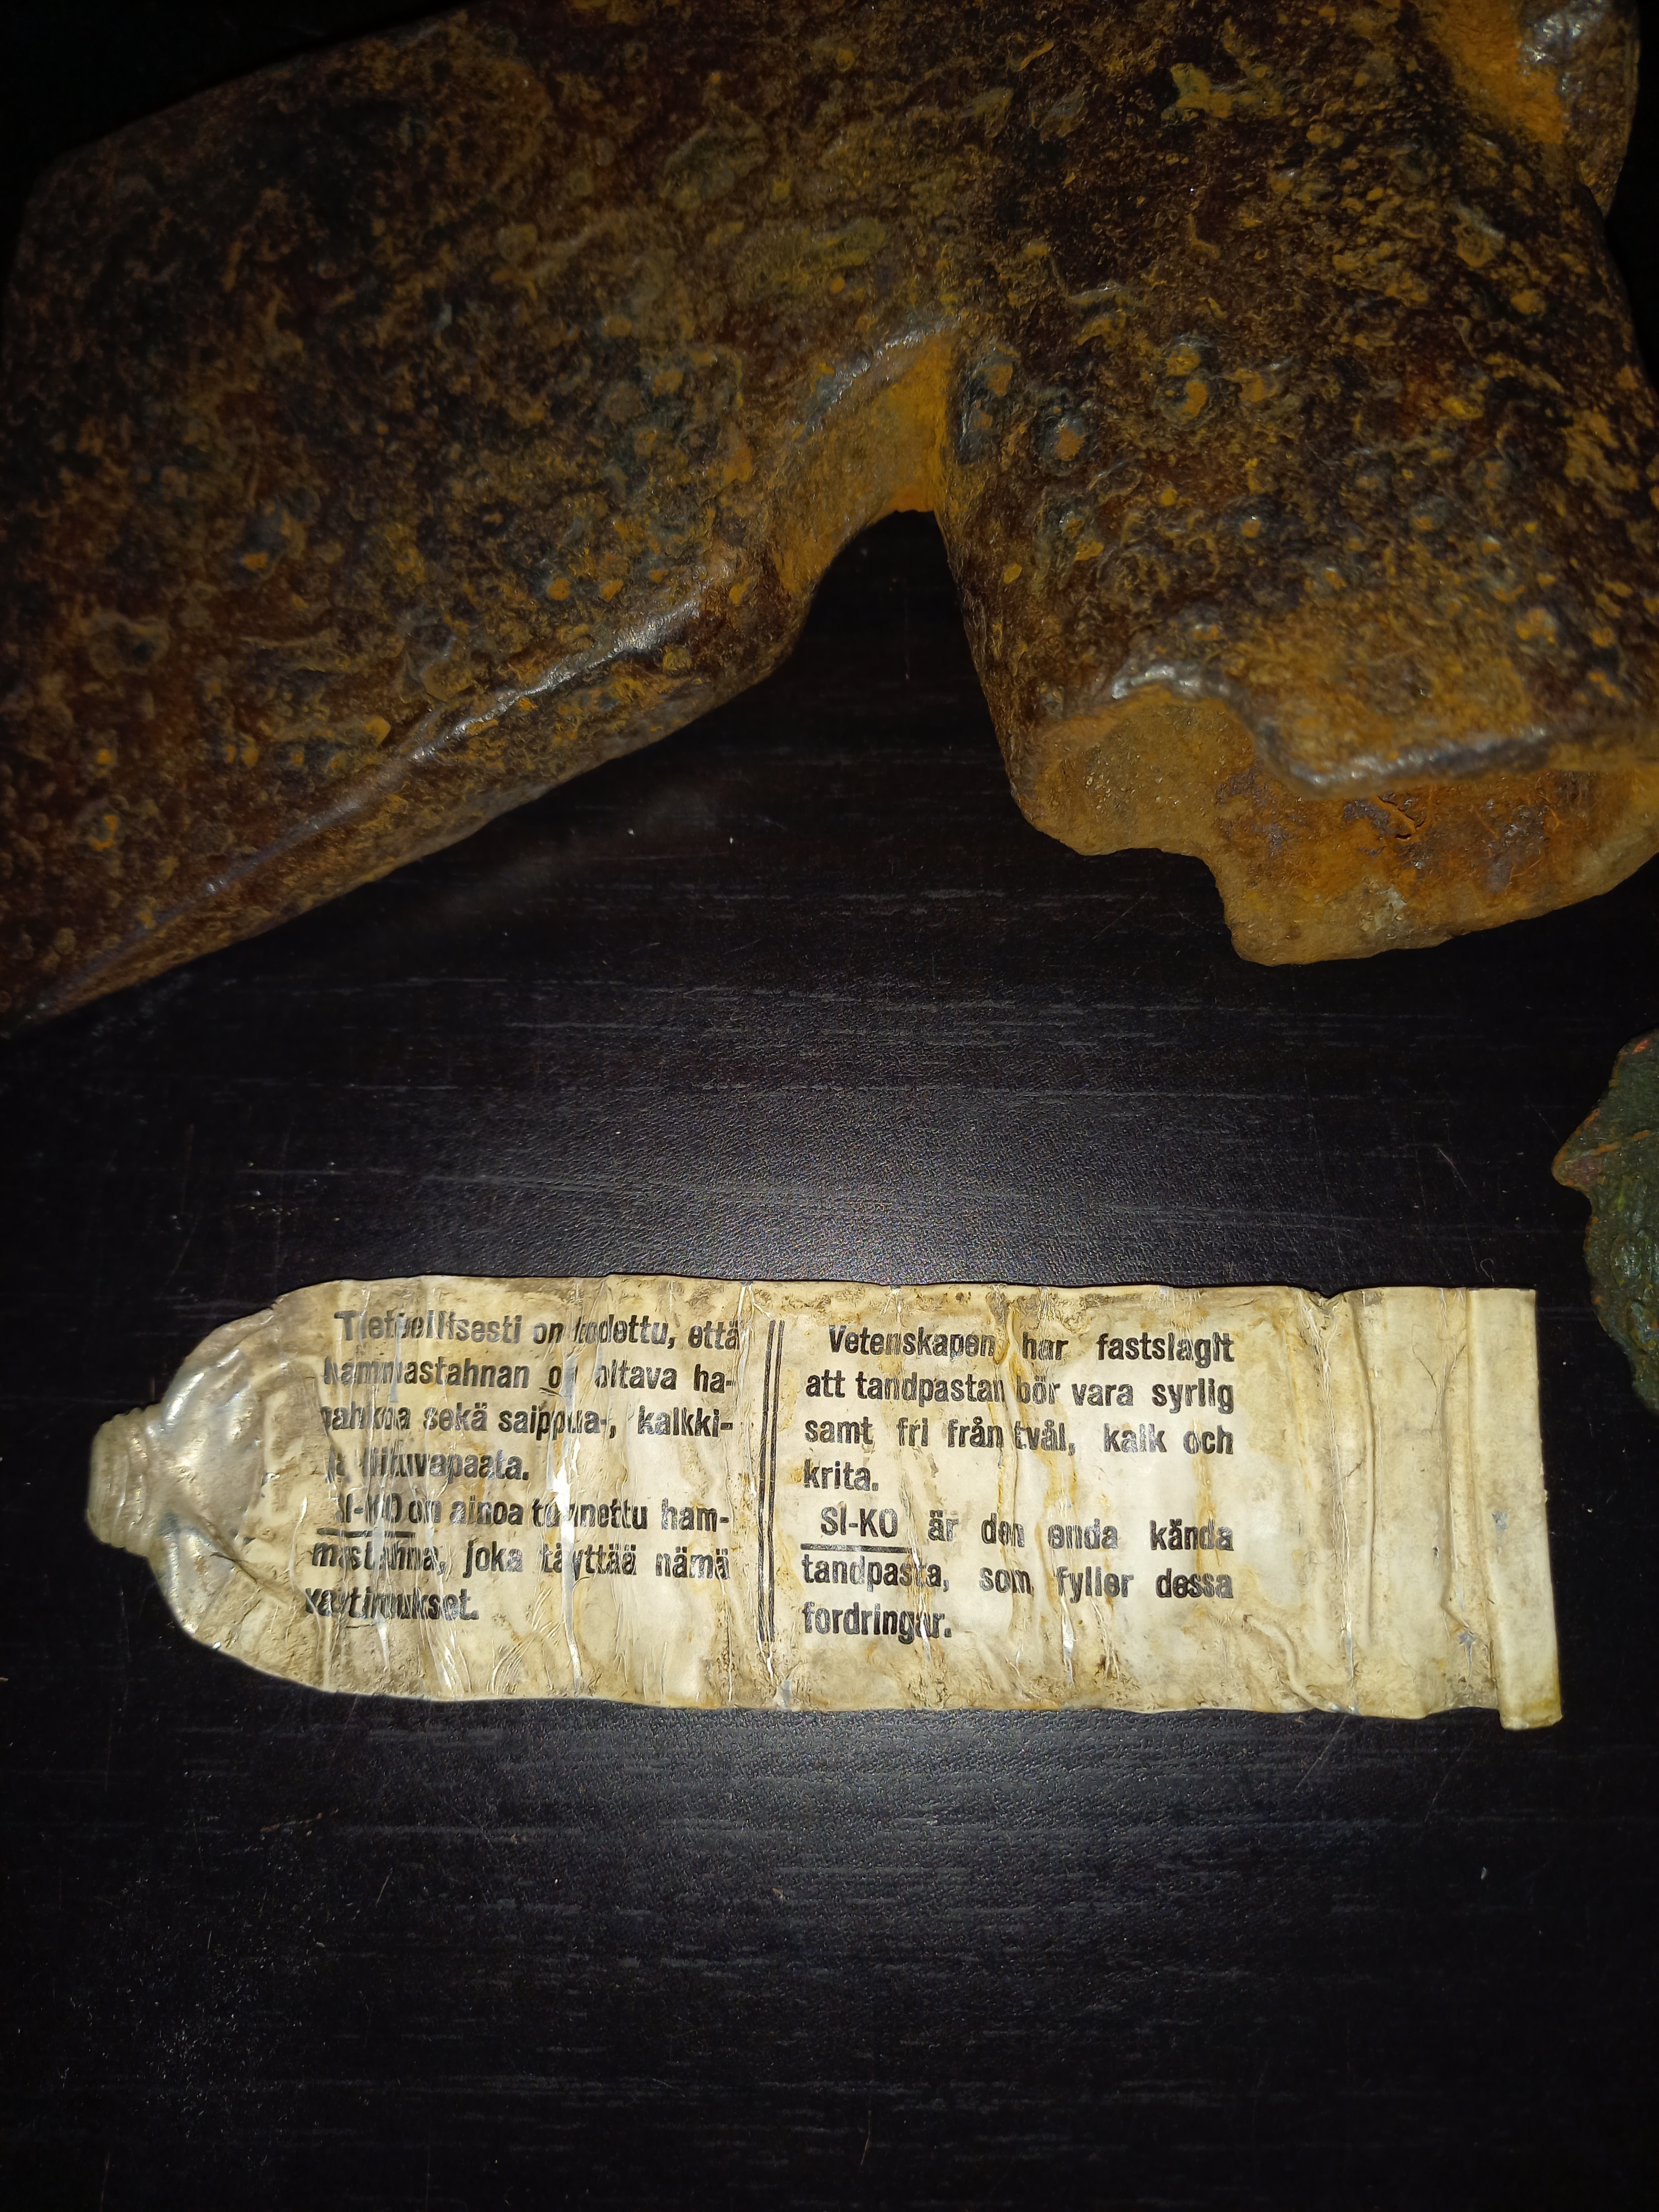 Tieteellisesti on todettu, että
hammastahnan on oltava ha-
pahkoa sekä saippua-, kalkki-
ja liituvapaata.
SI-KO on ainoa tunnettu ham-
mastahna, joka täyttää nämä
vaatimukset.
Vetenskapen har fastslagit
att tandpastan bör vara syrlig
samt fri från tvål, kalk och
krita.
SI-KO är den enda kända
tandpasta, som fyller dessa
fordringar.